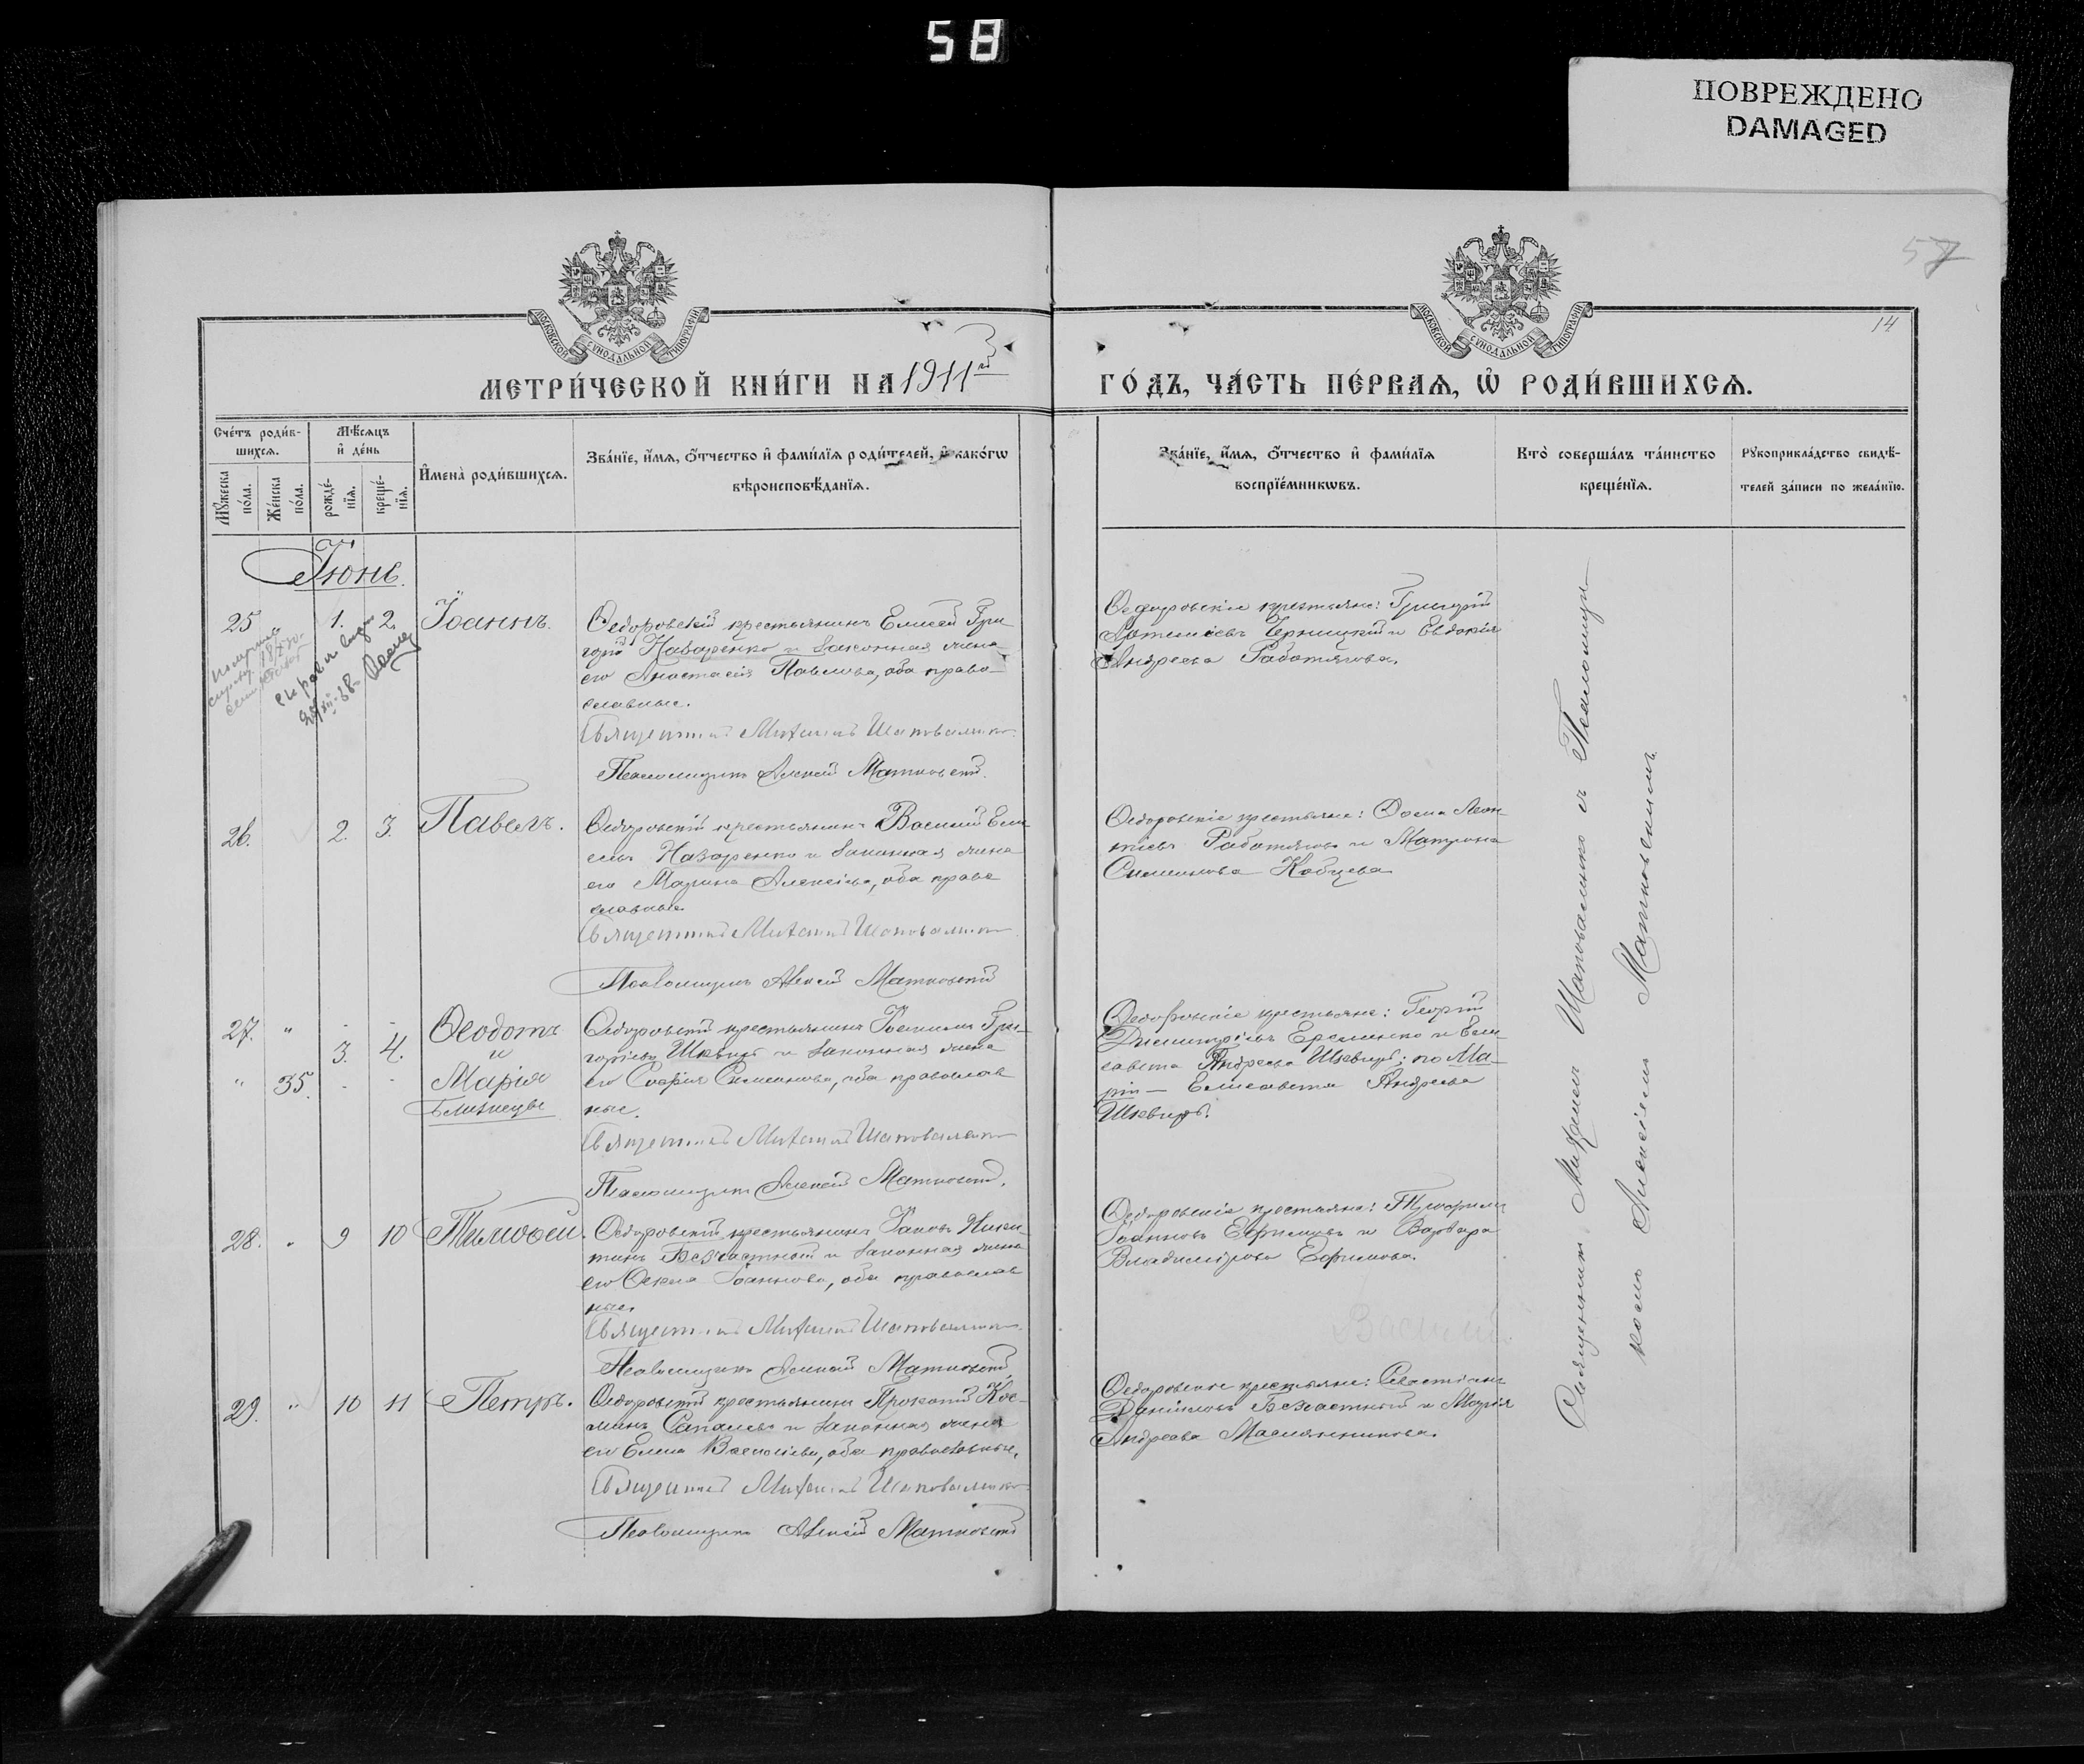 58
ПОВРЕЖДЕНО
DAMAGED
57
14
МОСКОВСКОЙ СѴНОДАЛЬНОЙ ТИПОГРАФІИ
МОСКОВСКОЙ СѴНОДАЛЬНОЙ ТИПОГРАФІИ
МЕТРИ́ЧЕСКОЙ КНИ́ГИ НА 1911й
ГО́ДЪ, ЧА́СТЬ ПЕ́РВАѦ, Ѡ҆ РОДИ́ВШИХСѦ.
Сче́тъ роди́в-
шихсѧ.
Мѣ́сѧцъ
и҆ де́нь
Мꙋ́жеска по́ла.
Же́нска по́ла.
рожде́-нїѧ.
креще́-нїѧ.
И҆мена̀ роди́вшихсѧ.
Зва́нїе, и҆́мѧ, ѻ҆́тчество и҆ фами́лїѧ роди́телей, и҆ како́гѡ
вѣроисповѣ́данїѧ.
Зва́нїе, и҆́мѧ, ѻ҆́тчество и҆ фами́лїѧ
воспрїе́мникѡвъ.
Кто̀ соверша́лъ та́инство
креще́нїѧ.
Рꙋкоприкла́дство свидѣ́-
телей за́писи по жела́нїю.
Іюнь.
25 1. 2. Іоаннъ.
Ѳедоровскій крестьянинъ Елисей Гри
горіо Назаренко и законная жена
его Анастасія Павлова, оба право-
славные.
Священникъ Михаилъ Шаповаленко
Псаломщикъ Алексій Матковскій.
Ѳедоровскіе крестьяне: Григорій
Артемьевъ Черницкій и Евдокія
Андреева Работягова.
26. 2. 3. Павелъ.
Ѳедоровскій крестьянинъ Василій Ели
сеевъ Назаренко и законная жена
его Марина Алексіева, оба право
славные.
Священникъ Михаилъ Шаповаленко
Псаломщикъ Алексій Матковскій
Ѳедоровскіе крестьяне: Ѳома Леон-
тіевъ Работяговъ и Матрона
Симеонова Кобцева.
27. " 3. 4. Ѳеодотъ
и
" 35. Марія
близнецы
Ѳедоровскій крестьянинъ Гри-
горіевъ Шквиръ и законная жена
его Софія Симеонова, оба православ
ные.
Священникъ Михаилъ Шаповаленко
Псаломщикъ Алексій Матковскій.
Ѳедоровскіе крестьяне: Георгій
Димитріевъ Еременко и Ели
савета Андреева Шквиръ; по Ма-
ріи — Елисавета Андреева
Шквиръ.
28. " 9 10 Тимоѳей.
Ѳедоровскій крестьянинъ Іаковъ Ники
тинъ Безчастный и законная жена
его Іоаннова, оба православ
ные.
Священникъ Михаилъ Шаповаленко
Псаломщикъ Алексій Матковскій
Ѳедоровскіе крестьяне: Трофимъ
Іоанновъ Ефимовъ и Варвара
Владимірова Ефимова.
Василій
29. " 10 11 Петръ.
Ѳедоровскій крестьянинъ Прокопій Кос-
минъ и законная жена
его Елена Василіева, оба православные.
Священникъ Михаилъ Шаповаленко
Псаломщикъ Алексій Матковскій
Ѳедоровскіе крестьяне: Севастіанъ
Даніиловъ Безчастный и Марія
Андреева Масленникова.
Священникъ Михаилъ Шаповаленко съ Псаломщи-
комъ Алексіемъ Матковскимъ